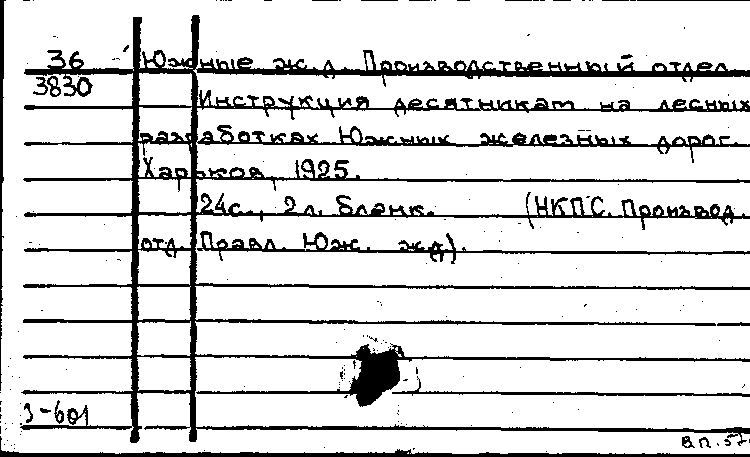 36 Южные ж.д. Производственный отдел
3830
Инструкция десятникам на лесных
разработках Южных железных дорог.
Харьков, 1925.
24с., 2л. бланк. (НКПС. Производ.
отд. Правл. Юж. жд).
3-601
вп.57